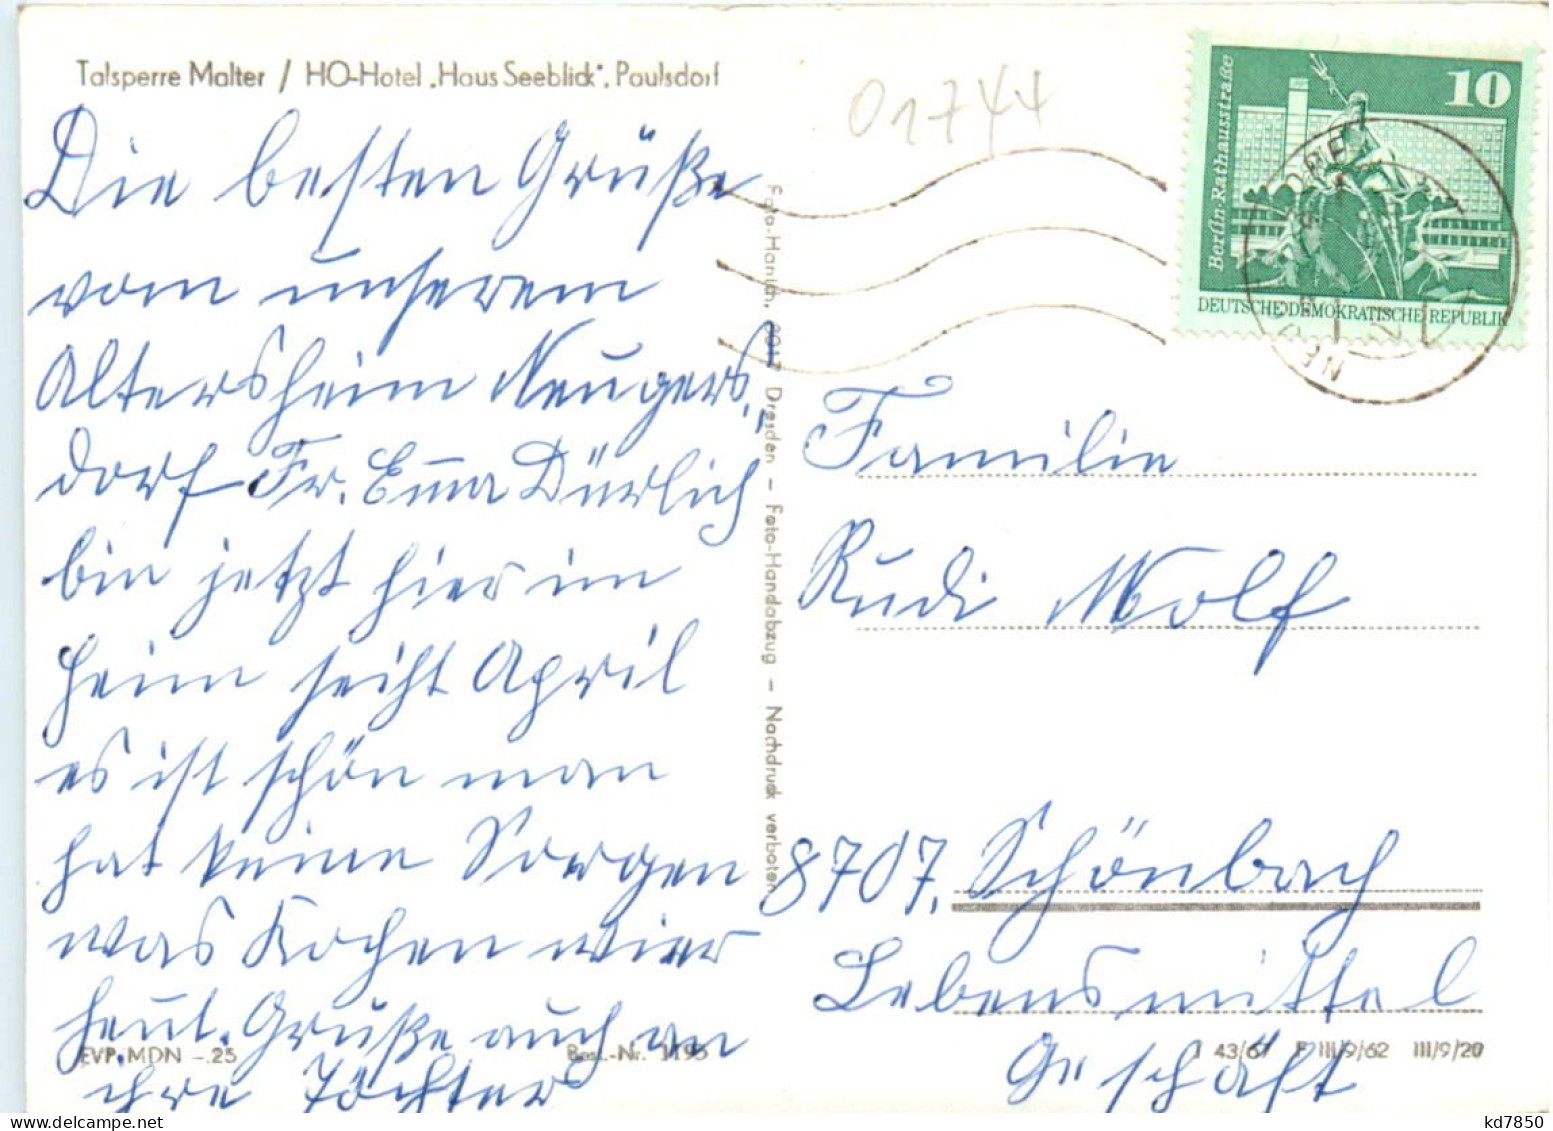 Talsperre Malter / HO-Hotel „Haus Seeblick", Paulsdorf
01744
10
Berlin Rathausstraße
DEUTSCHE DEMOKRATISCHE REPUBLIK
Die besten Grüße
vom unserem
Altersheim Neugers,
dorf Fr. Emma Dürlich
bin jetzt hier im
Heim seiht April
es ist schön man
hat keine Sorgen
was Kochen wier
heut. Grüße auch an
ihre Töchter
Foto-Hanich, 8017 Dresden – Foto-Handabzug – Nachdruck verboten
Familie
Rudi Wolf
8707, Schönbach
Lebensmittel
Geschäft
EVP MDN -.25
Best.-Nr. 1195
I 43/67 P III/9/62 III/9/20
kd7850